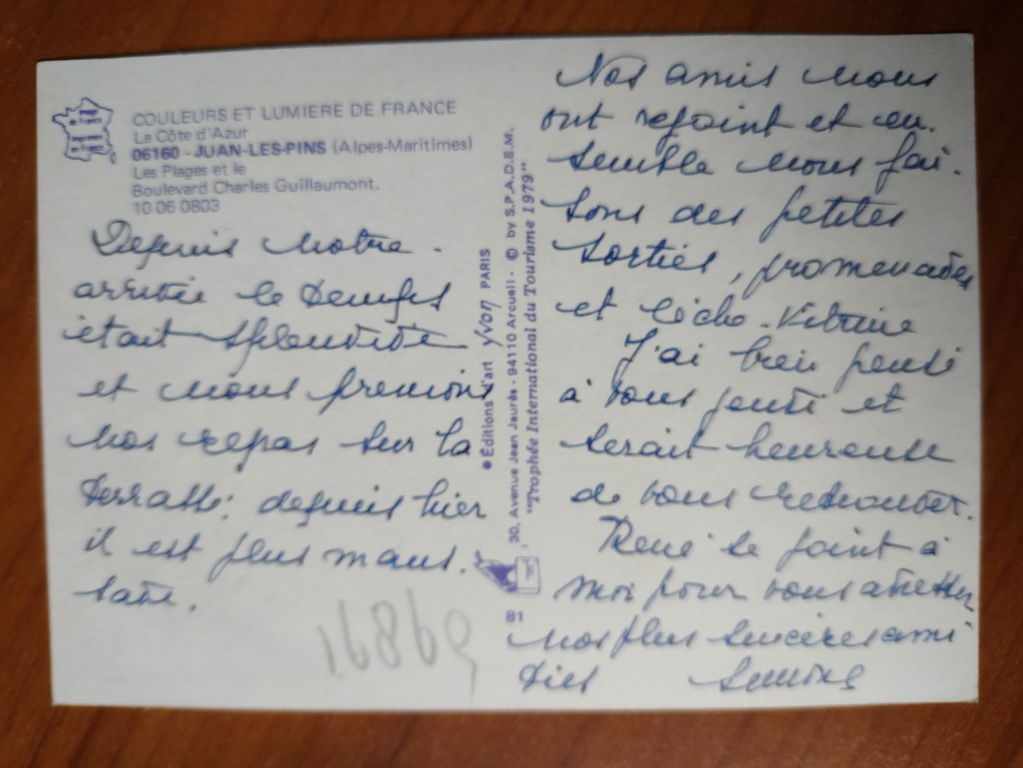 COULEURS ET LUMIERE DE FRANCE
La Côte d'Azur
06160 - JUAN-LES-PINS (Alpes-Maritimes)
Les Plages et le
Boulevard Charles Guillaumont.
10 06 0803
Depuis notre
arrivée le temps
était splendide
et nous prenions
nos repas sur la
terrasse. depuis hier
il est plus maus.
sade.
● Éditions d'art Yvon PARIS
30, Avenue Jean Jaurès - 94110 Arcueil - © by S.P.A.D.E.M.
"Trophée International du Tourisme 1979"
81
Nos amis nous
ont rejoint et en.
semble nous fai.
sons des petites
sorties, promenades
et lèche-vitrine
J'ai bien pensé
à vous et
serait heureuse
de vous retrouver.
René se joint à
moi pour vous adresser
nos plus sincères ami
tiés Simone